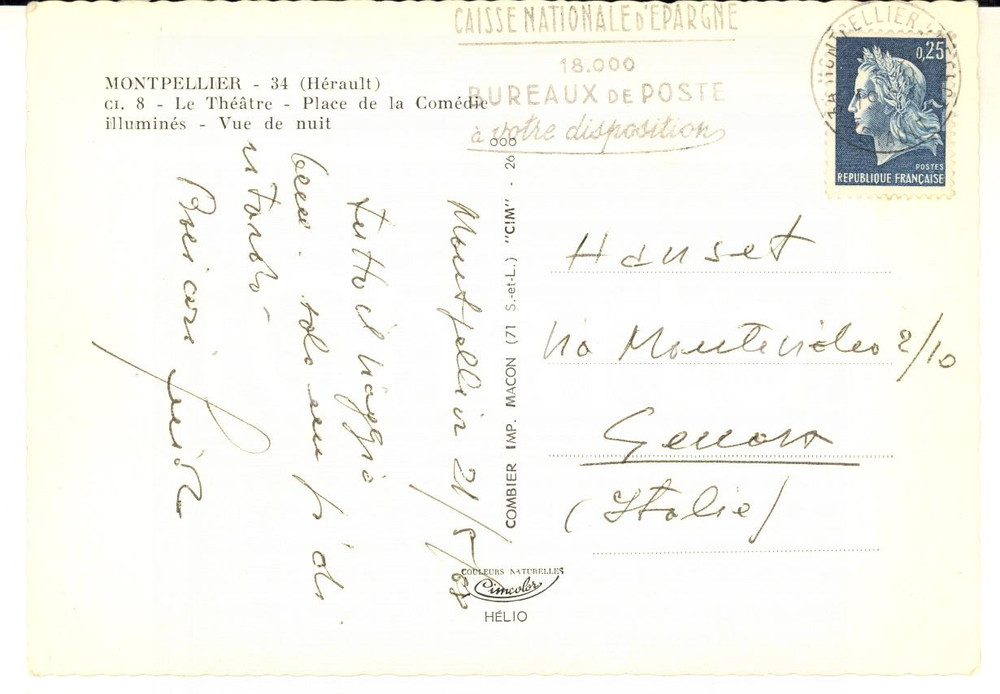 MONTPELLIER - 34 (Hérault)
CI. 8 - Le Théâtre - Place de la Comédie
illuminés - Vue de nuit
CAISSE NATIONALE D'ÉPARGNE
18.000
BUREAUX DE POSTE
à votre disposition
MONTPELLIER
0,25
POSTES
REPUBLIQUE FRANÇAISE
Montpellier 21/5/68
tutto il viaggio
bene. solo un po' di
ritardo -
Bacioni
COMBIER IMP. MACON (71 S.-et-L.) "CIM" - 26 000
COULEURS NATURELLES
Cimcolor
HÉLIO
Hanset
Via Montevideo 2/10
Genova
(Italie)